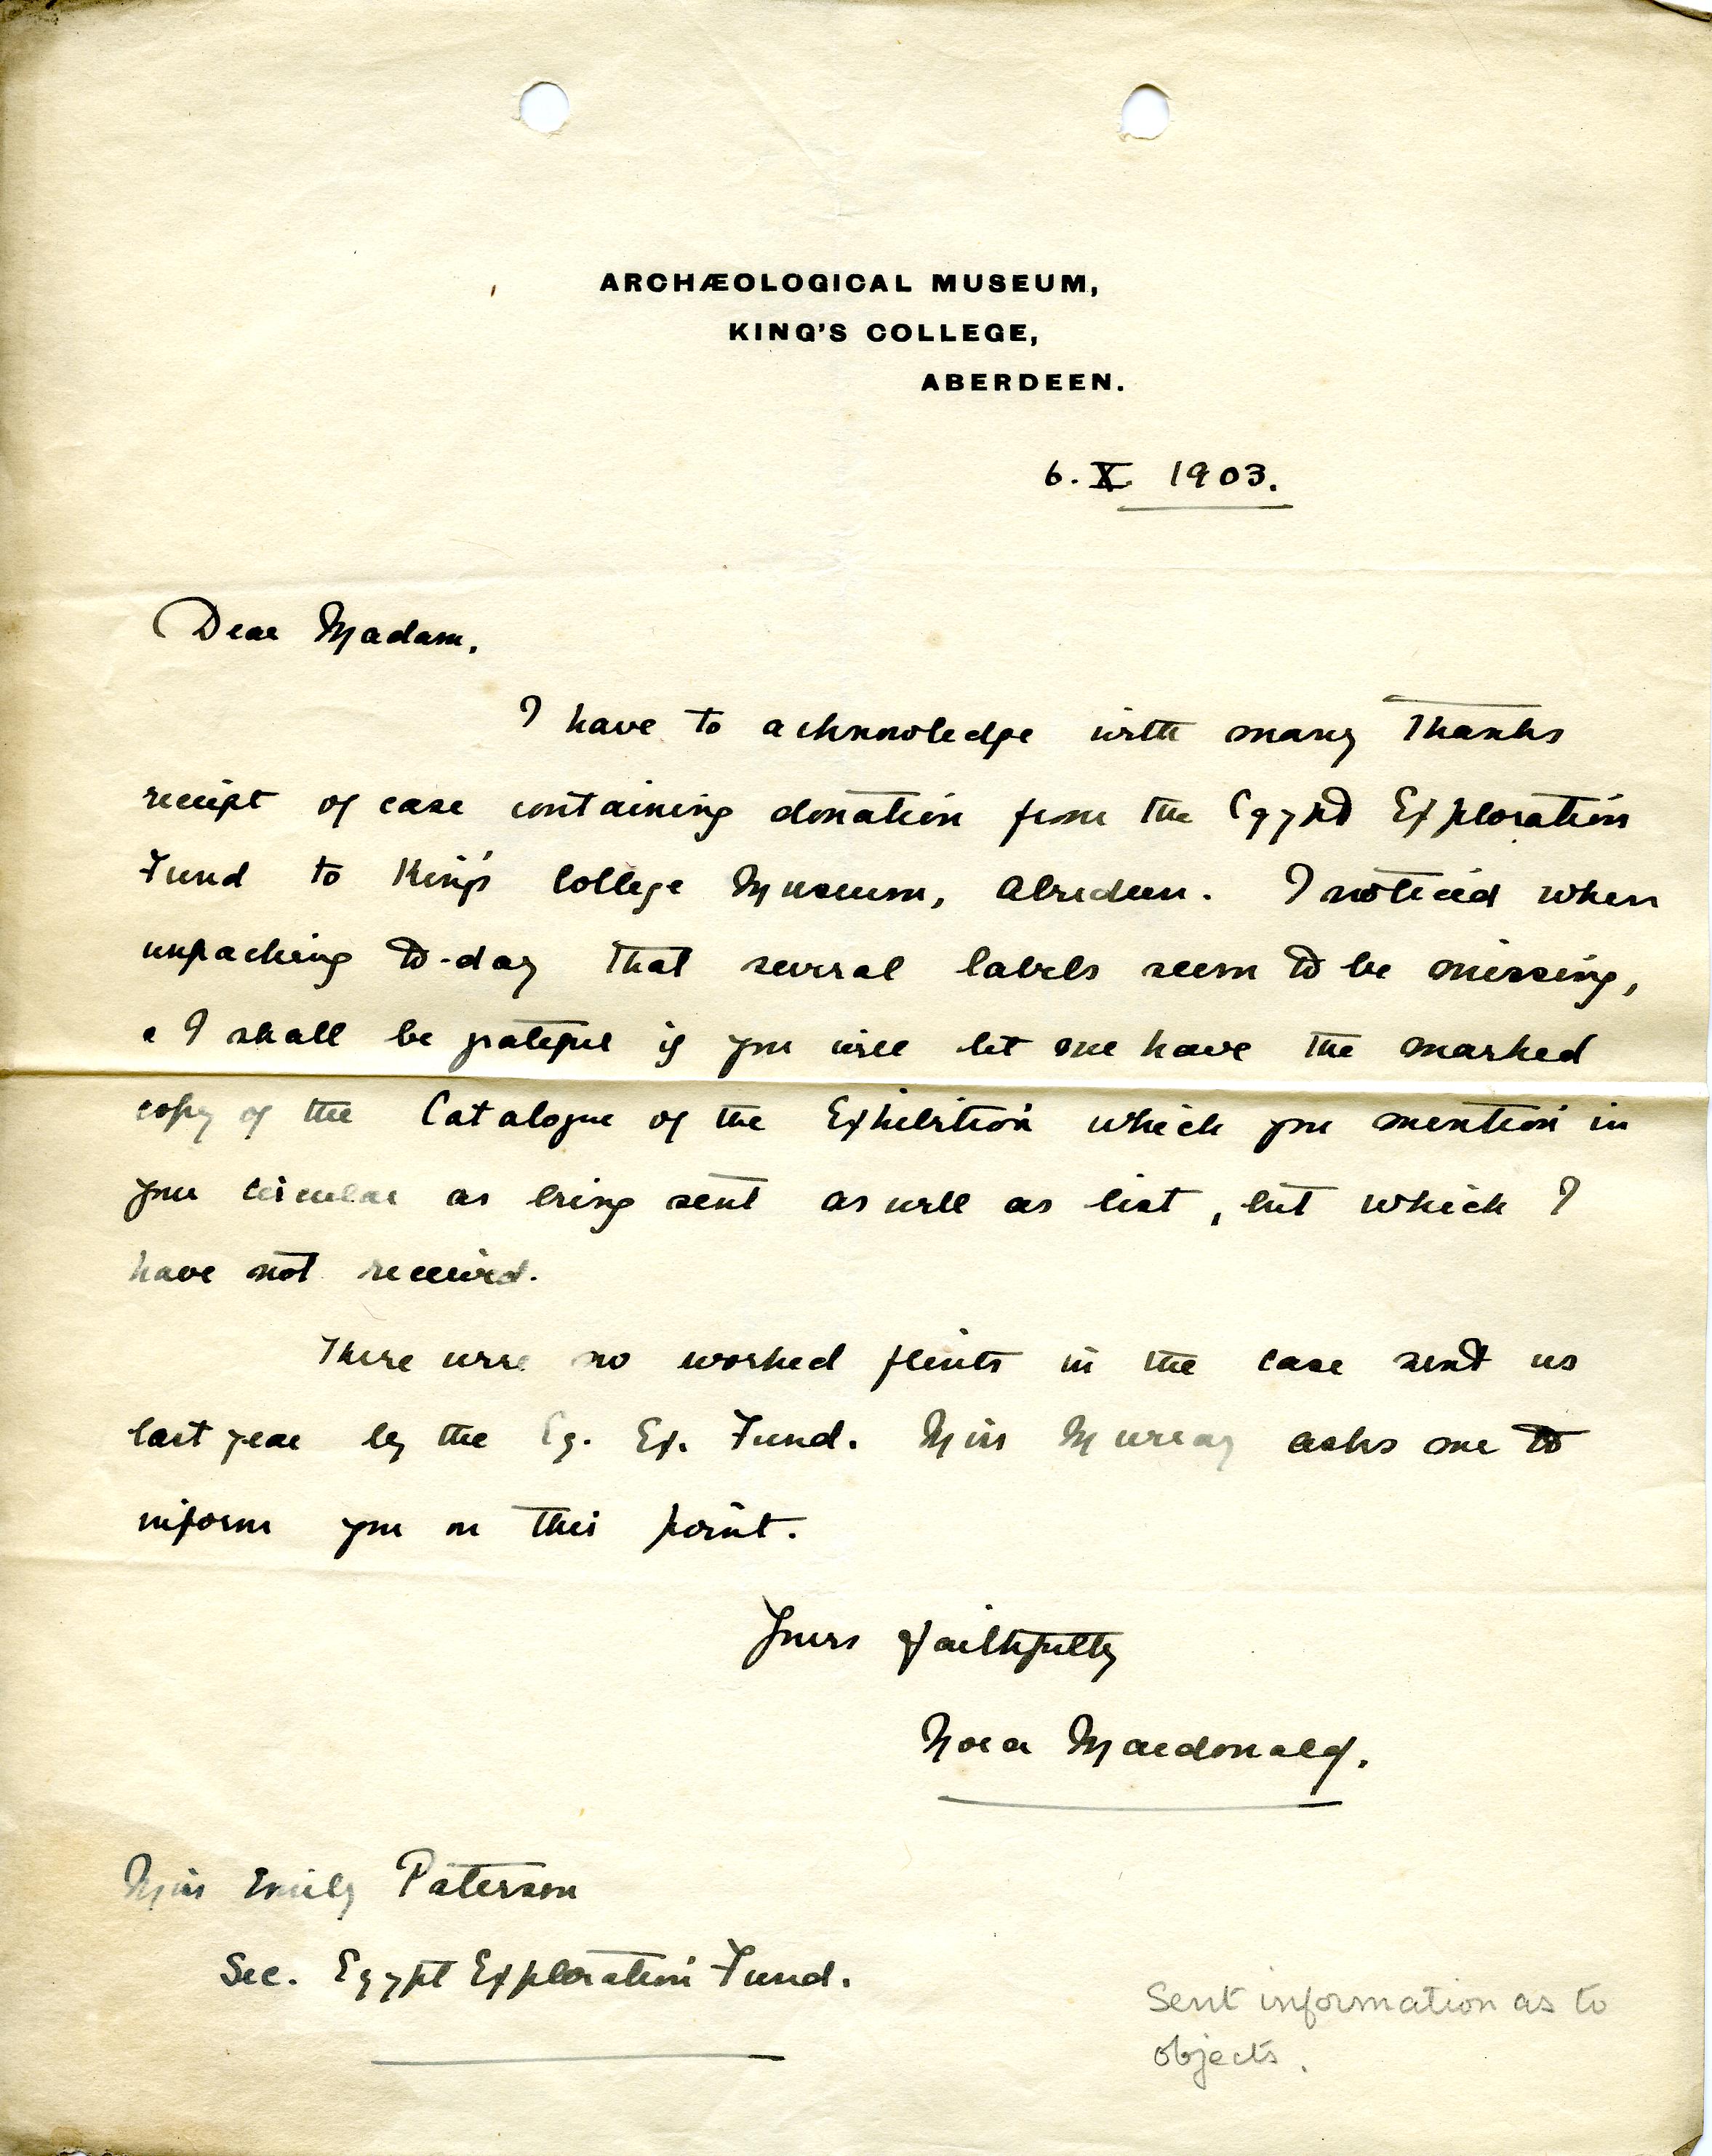 ARCHÆOLOGICAL MUSEUM,
KING'S COLLEGE,
ABERDEEN.
6. X 1903.
Dear Madam,
I have to acknowledge with many thanks
receipt of case containing donation from the Egypt Exploration
Fund to King's College Museum, Aberdeen. I noticed when
unpacking to-day that several labels seem to be missing,
& I shall be grateful if you will let me have the marked
copy of the Catalogue of the Exhibition which you mention in
your circular as being sent as well as list, but which I
have not received.
There were no worked flints in the case sent us
last year by the Eg. Ex. Fund. Miss Murray asks me to
inform you on this point.
Yours faithfully
Nora Macdonald.
Miss Emily Paterson
Sec. Egypt Exploration Fund.
Sent information as to
objects.